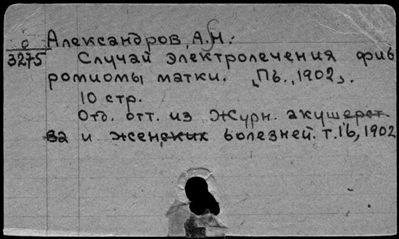 б Александров, А.Н.
3275 Случай электролечения фиб
ромиомы матки. "Пб.", 1902.
10 стр.
Отд. отт. из Журн. акушерст
ва и женских болезней. т.16, 1902